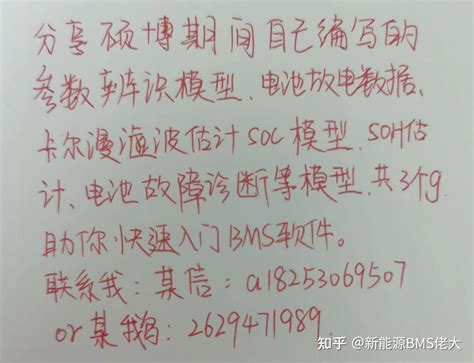 分享硕博期间自己编写的
参数辨识模型、电池放电数据、
卡尔漫滤波估计SOC模型、SOH估
计、电池故障诊断等模型,共3个g
助你快速入门BMS软件。
联系我:某信:a18253069507
or某鹅:2629471989.
知乎 @新能源BMS佬大